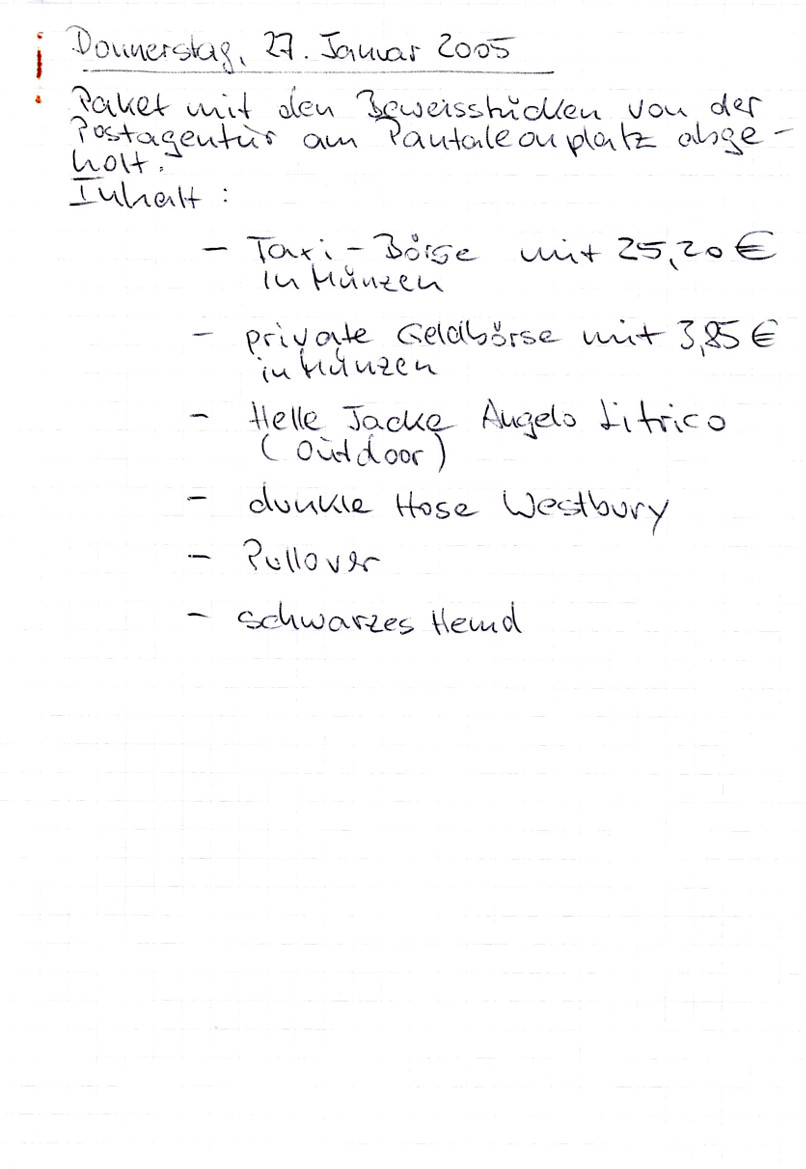 Donnerstag, 27. Januar 2005
Paket mit den Beweisstücken von der
Postagentur am Pantaleonplatz abge-
holt.
Inhalt :
- Taxi-Börse mit 25,20 €
in Münzen
- private Geldbörse mit 3,85 €
in Münzen
- Helle Jacke Angelo Litrico
(Outdoor)
- dunkle Hose Westbury
- Pullover
- schwarzes Hemd